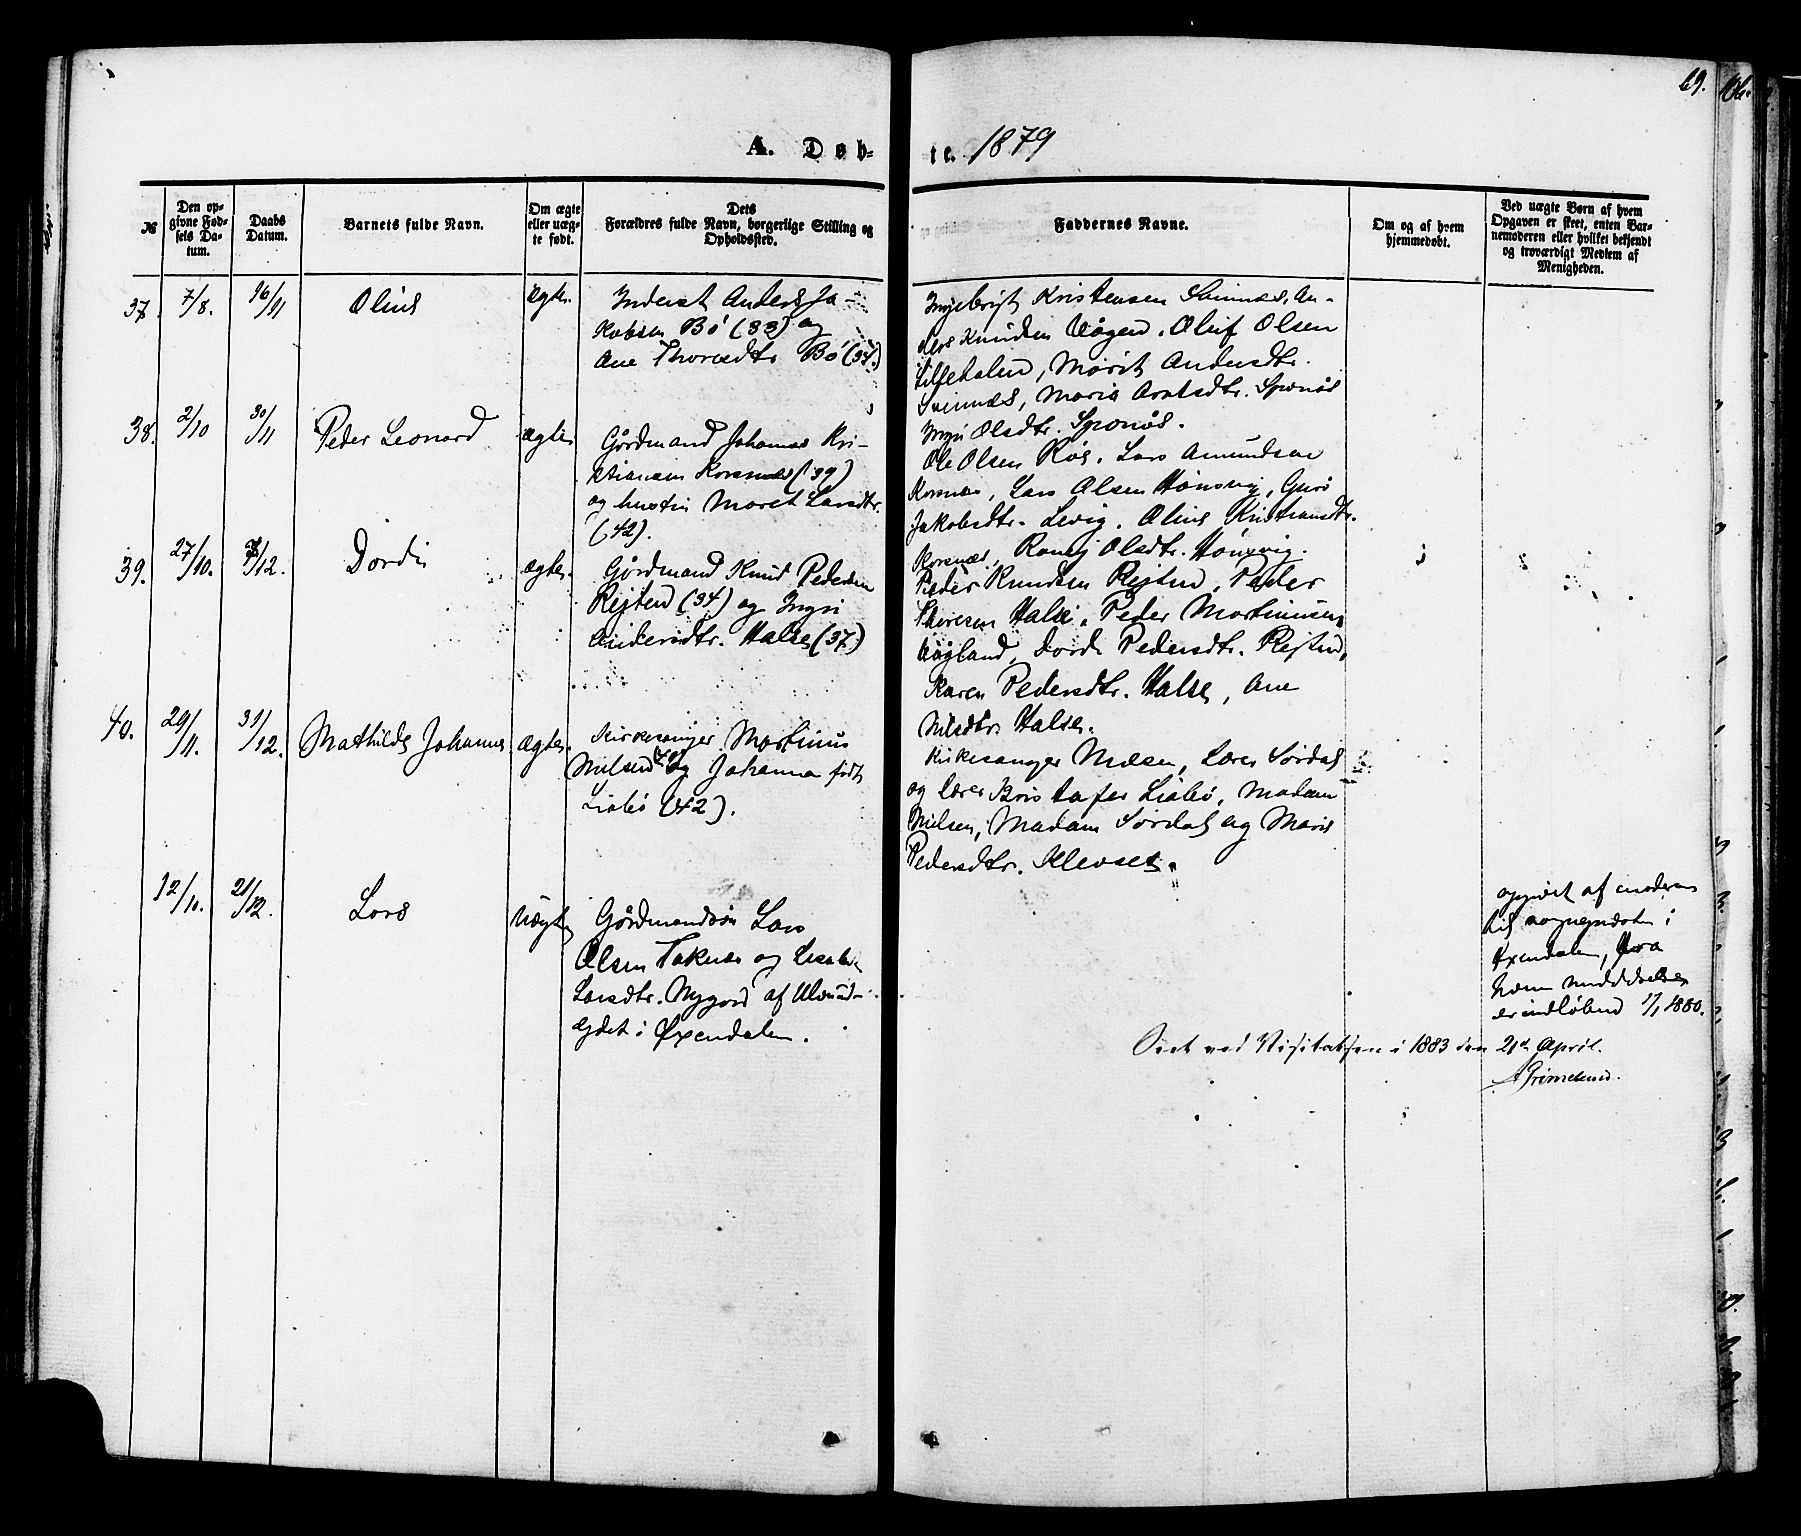 69.
A. Døb-
te. 1879
№
Den op-
givne Fød-
sels Da-
tum.
Daabs
Datum.
Barnets fulde Navn.
Om ægte
eller uæg-
te født.
Dets
Forældres fulde Navn, borgerlige Stilling og
Opholdssted.
Faddernes Navne.
Om og af hvem
hjemmedøbt.
Ved uægte Børn af hvem
Opgaven er skeet, enten Bar-
nemoderen eller hvilket bekjendt
og troværdigt Medlem af
Menigheden.
37. 7/8. 16/11 Olius ægte.
Inderst Anders Ja-
kobsen Bö (33) og
Ane Thoresdtr Bö (34.)
Ingebrigt Kristensen Svinnæs, An-
ders Knudsen Vågen, Oluf Olsen
Lillehalen, Marit Andersdtr.
Svinnæs, Maria Aratsdtr. Sponås
Ingri Olsdtr. Sponås.
38. 2/10 30/11 Peder Leonard ægte.
Gårdmand Johannes Kri-
stiansen Korsnæs (39)
og hustru Maret Larsdtr.
(42).
Ole Olsen Røs, Lars Amundsen
Korsnæs, Lars Olsen Hønsvig, Guro
Jakobsdtr. Levig, Olius Kristiansdtr.
Korsnæs, Romej Olsdtr. Hønsvig.
39. 27/10. 7/12. Dordi ægte.
Gårdmand Knud Pedersen
Rejten (34) og Ingri
Andersdtr. Halse (37)
Peder Knudsen Rejten, Peder
Thoresen Halse, Peder Martinusen
Aagland, Dordi Pedersdtr. Rejten,
Karen Pedersdtr. Halse, Ane
Nilsdtr. Halse.
40. 29/11. 31/12. Mathilde Johanna ægte.
Kirkesanger Martinus
Nielsen og Johanna født
Liabø (42).
Kirkesanger Nielsen, Lærer Sørdal
og lærer Kristofer Liabø, Madam
Nielsen, Madam Sørdal og Marit
Pedersdtr. Klevset.
12/10. 21/12. Lars uægte
Gårdmandssøn Lars
Olsen Toknæs og
Larsdtr. Nygård af Ulvund-
ejdet i Øxendalen.
opgivet af moderen
til sognepræsten i
Øxendalen, fra
hvem meddelelse
er indløbend 1/1 1880.
Seet ved Visitatsen i 1883 den 21de April.
Grimelund.